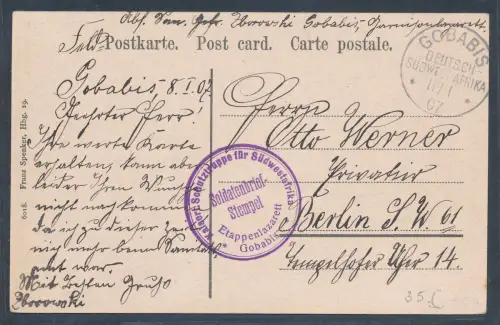 Abs. San. Gefr. Zborowski Gobabis, Garnisonlazarett.
Feld-Postkarte. Post card. Carte postale.
Gobabis, 8.I.07
Geehrter Herr!
Ihre werte Karte
erhalten, kann aber
leider Ihren Wunsch
nicht nachkommen
da ich zu dieser Zeit
nicht mehr beim Sanitäts
amt war.
Mit besten Gruß
Zborowski
6018. Franz Spenker, Hbg. 19.
GOBABIS
DEUTSCH-
SÜDWESTAFRIKA
07
Kaiserl. Schutztruppe für Südwestafrika
Soldatenbrief-
Stempel
Etappenlazarett
Gobabis
Herrn
Otto Werner
Privatier
Berlin S.W 61
Tempelhofer Ufer 14.
35